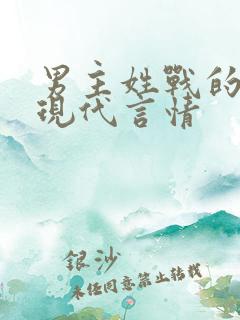 男主姓戰的
現代言情
銀沙
未任同意禁止轉載